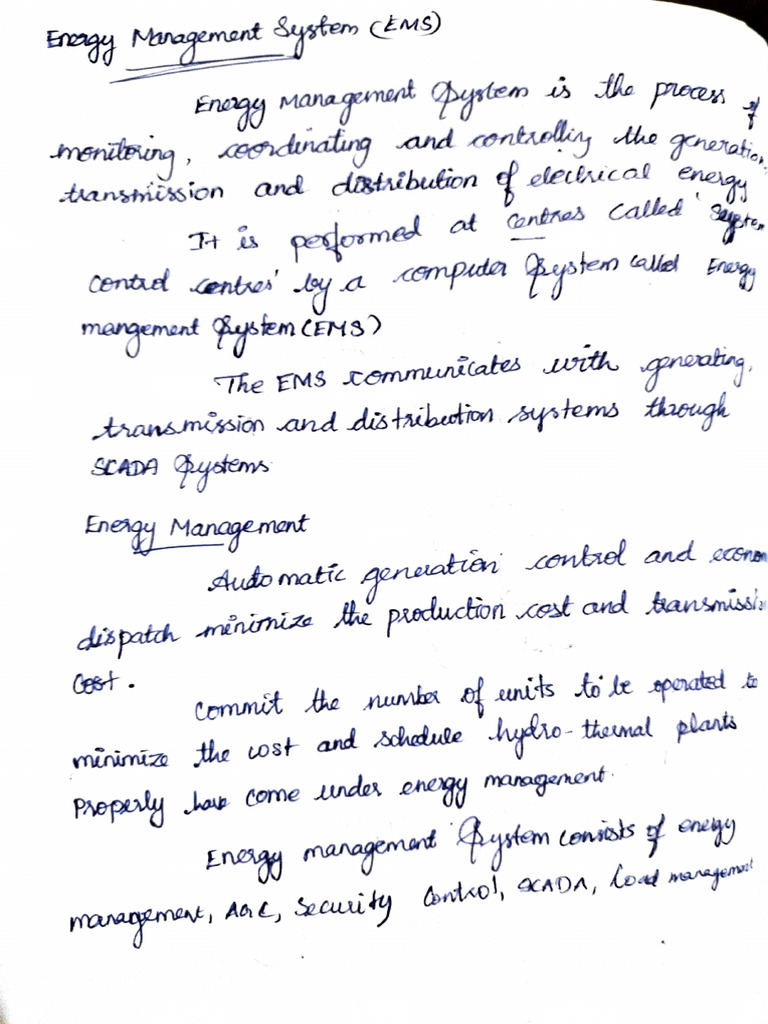 Energy Management System (EMS)
Energy Management System is the process of
monitoring, coordinating and controlling the generation,
transmission and distribution of electrical energy
It is performed at centres called 'System
Control centres' by a computer System called Energy
mangement System (EMS)
The EMS communicates with generating,
transmission and distribution systems through
SCADA Systems
Energy Management
Automatic generation control and econom
dispatch minimize the production cost and transmissio
Cost.
Commit the number of units to be operated to
minimize the cost and schedule hydro-thermal plants
Properly have come under energy management.
Energy management System consists of energy
management, AGC, Security Control, SCADA, load management